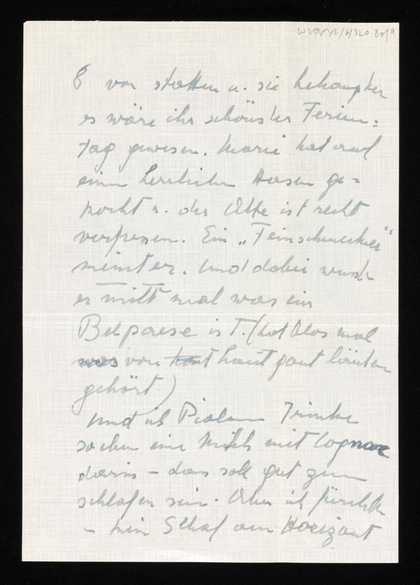 8 vor statten u. sie behauptet
es wäre ihr schönster Ferien=
tag gewesen. Marie hat auf
einen herrlichen Hasen ge=
kocht u. der Alte ist recht
verfressen. Ein „Feinschmecker"
meint er. Und dabei
es nicht mal was ein
Belpaese ist. (hat blos mal
was von haut gout läuten
gehört)
Und ich Trinke
soeben eine Milch mit Cognac
darin – das soll gut zum
schlafen sein. Aber ich fürchte
– kein Schaf am Horizont